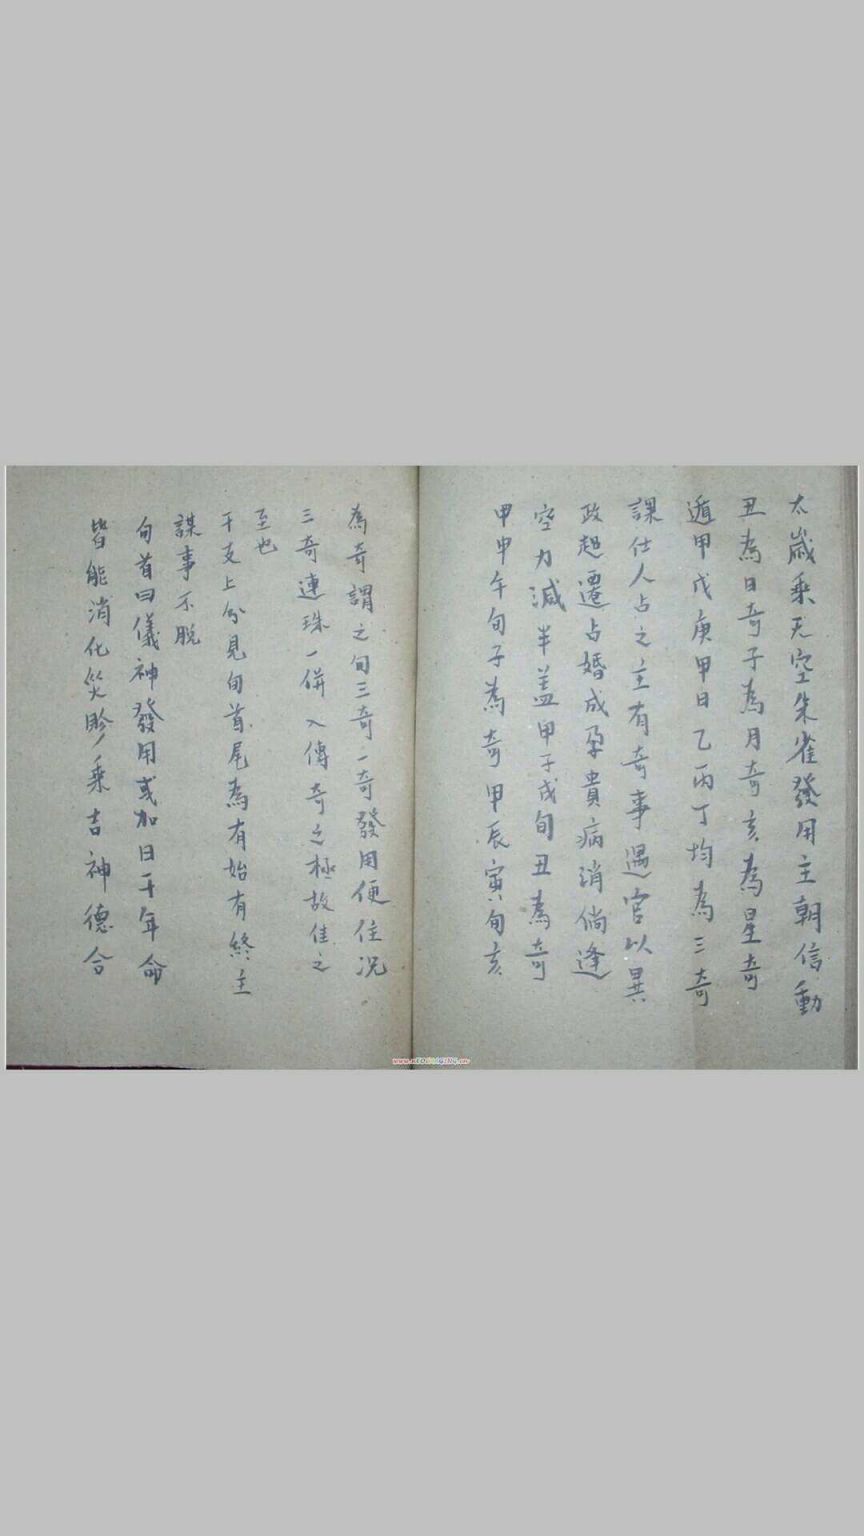 太歲乘天空朱雀發用主朝信動
丑為日奇子為月奇亥為星奇
遁甲戊庚甲日乙丙丁均為三奇
課仕人占之主有奇事遇官以異
政超遷占婚成孕貴病消倘逢
空力減半蓋甲子戌旬丑為奇
甲申午旬子為奇甲辰寅旬亥
為奇謂之旬三奇一奇發用便佳况
三奇連珠一併入傳奇之極故佳之
至也
干支上分見旬首尾為有始有終主
謀事不脫
旬首曰儀神發用或加日干年命
皆能消化災眚乘吉神德合